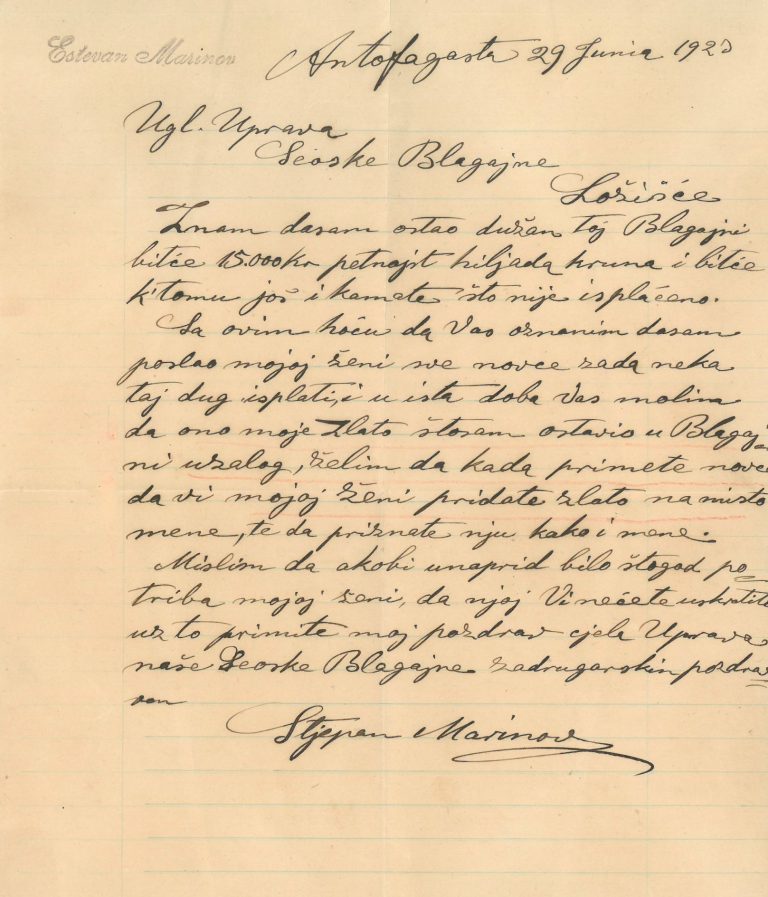 Estevan Marinov
Antofagasta 29 Junia 192
Ugl. Uprava
Seoske Blagajne
Ložišće
Znam dasam ostao dužan toj Blagajni
bitće 15.000Kr petnajst hiljada kruna i bitće
k'tomu još i kamate što nije isplaćeno.
Sa ovim hoću da Vas oznanim dasam
poslao mojoj ženi sve novce zada neka
taj dug isplati, i u ista doba Vas molim
da ono moje Zlato štosam ostavio u Blagaj
ni uzalog, želim da kada primete novce
da vi mojoj ženi pridate zlato na misto
mene, te da priznate nju kako i mene.
Mislim da akobi unaprid bilo štogod po
triba mojoj ženi, da njoj Vi nećete uskratiti
uz to primite moj pozdrav cjela Uprava
naše Seoske Blagajne zadrugarskin pozdra
von
Stjepan Marinov